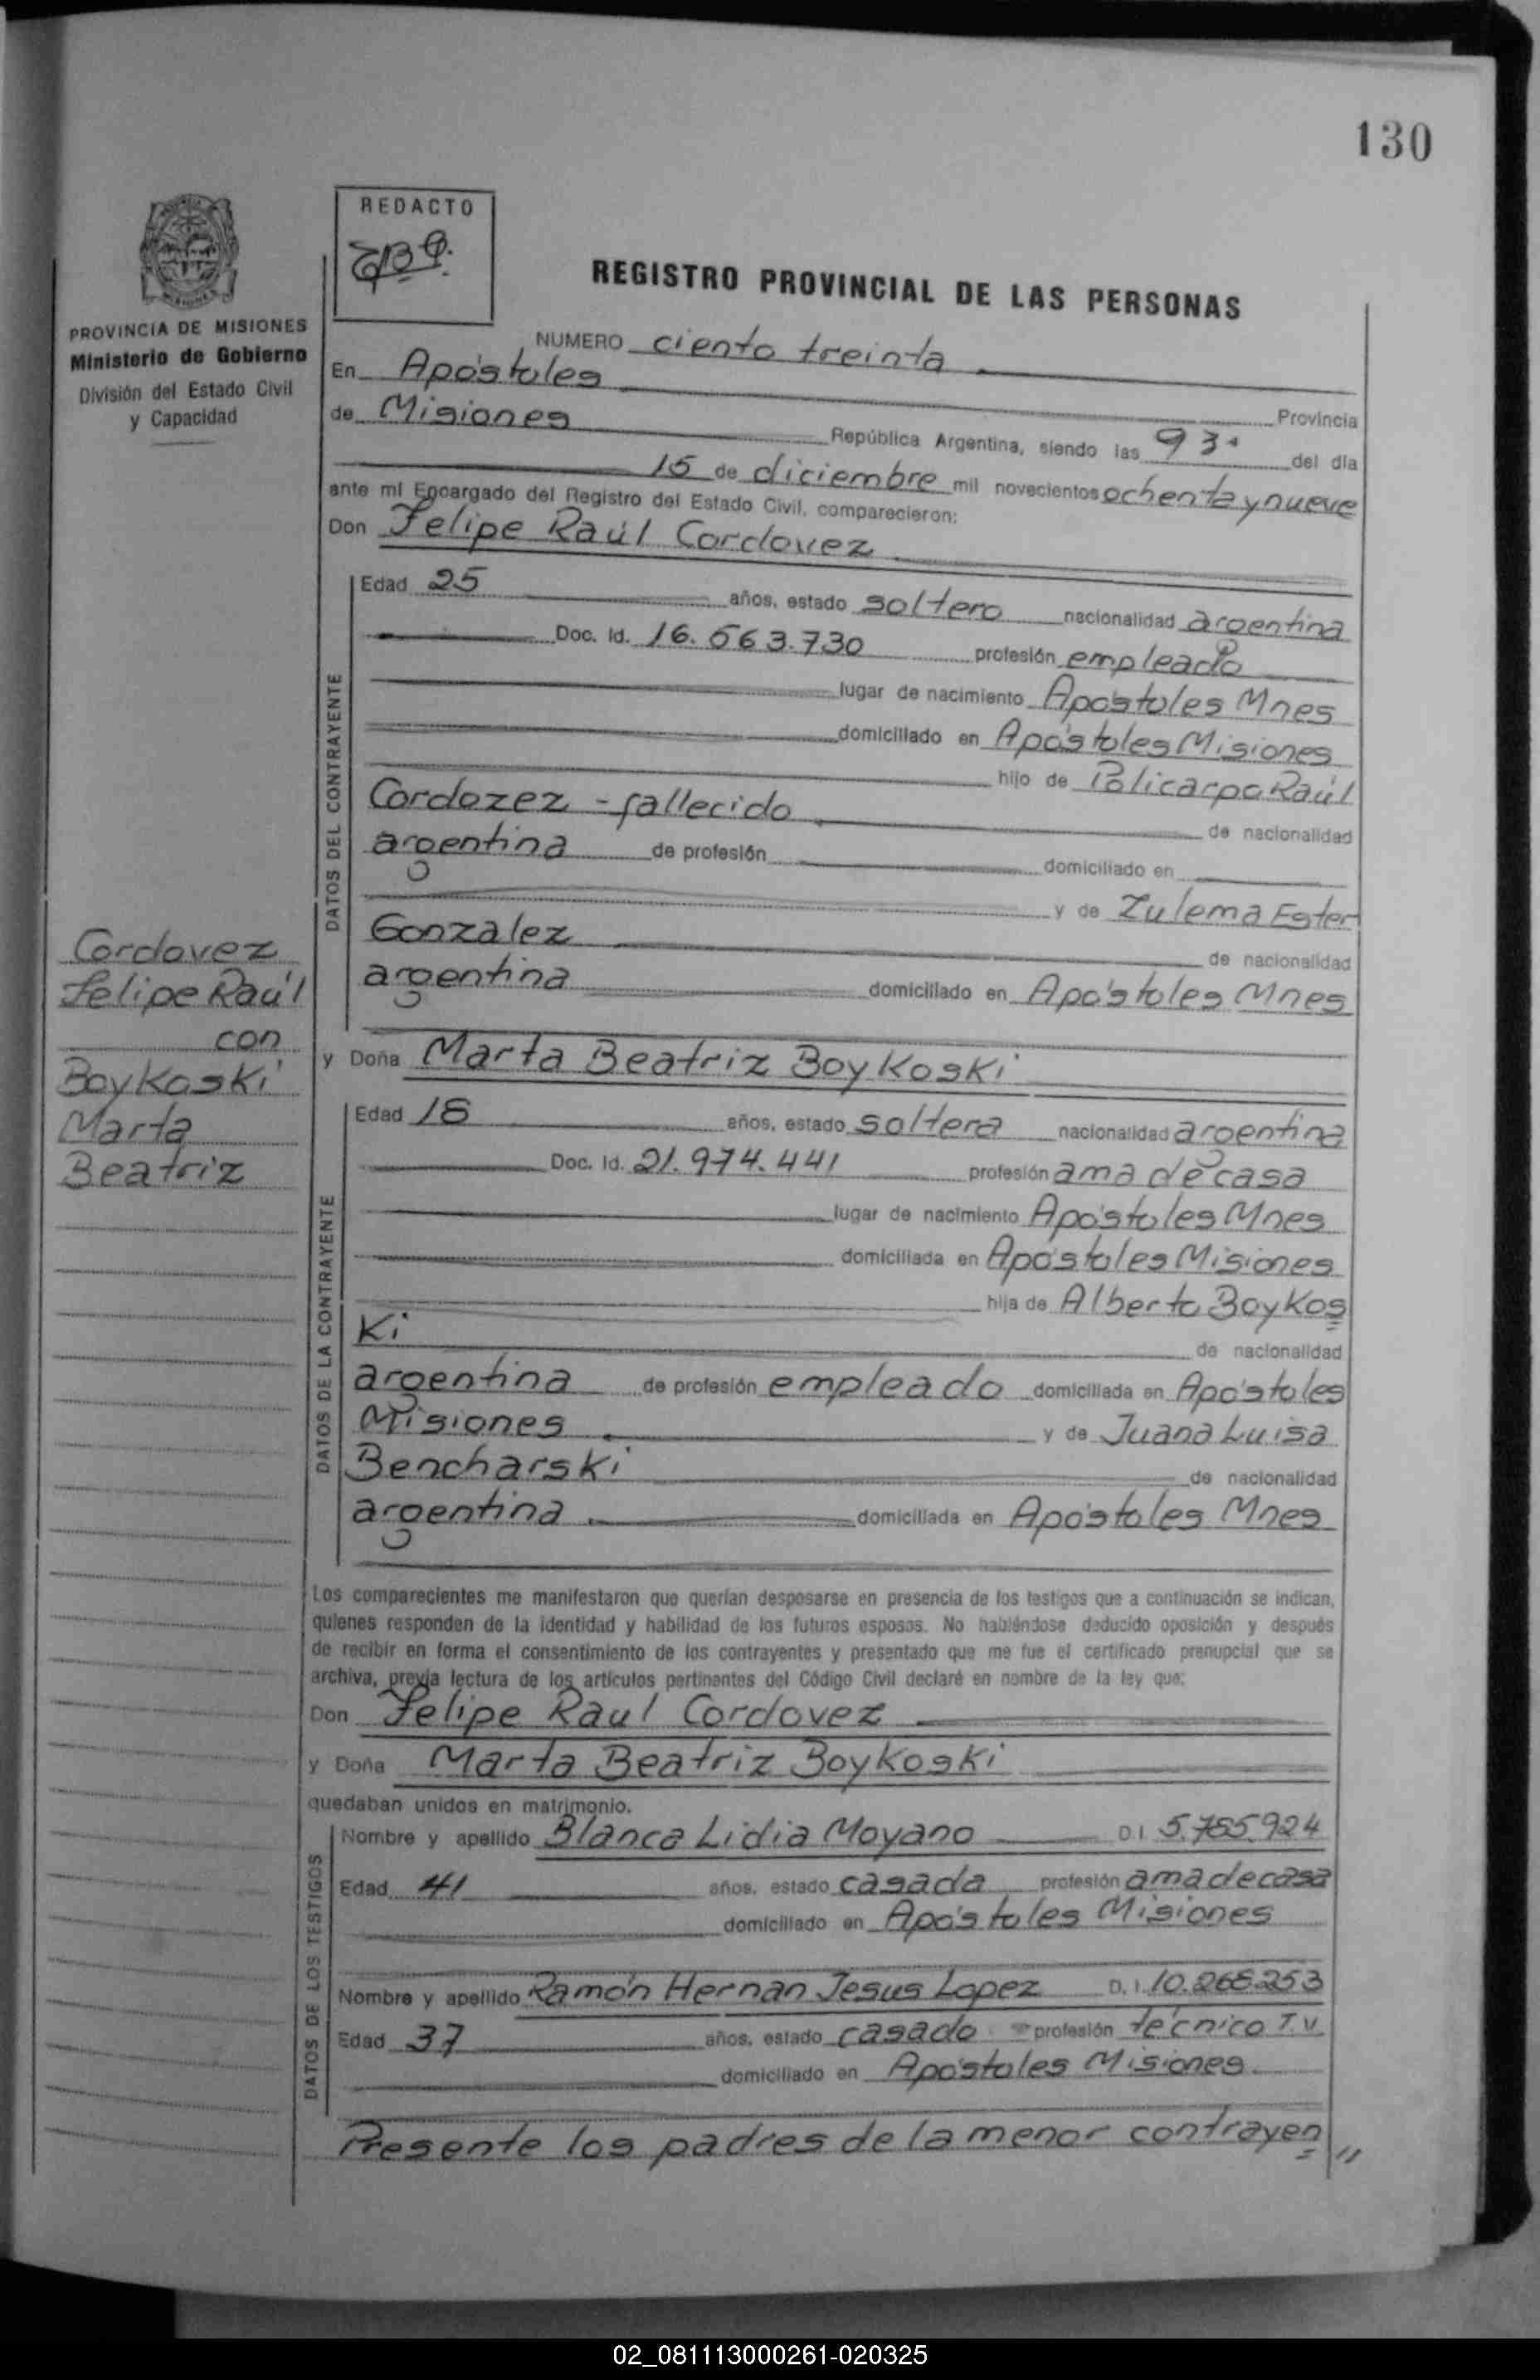 130
REDACTO
REGISTRO PROVINCIAL DE LAS PERSONAS
PROVINCIA DE MISIONES
Ministerio de Gobierno
División del Estado Civil
y Capacidad
NUMERO ciento treinta
En Apóstoles Provincia
de Misiones República Argentina, siendo las 9 30 del día
15 de diciembre mil novecientos ochenta y nueve
ante mí Encargado del Registro del Estado Civil, comparecieron:
Don Felipe Raúl Cordovez
DATOS DEL CONTRAYENTE
Edad 25 años, estado soltero nacionalidad argentina
Doc. Id. 16.563.730 profesión empleado
lugar de nacimiento Apóstoles Mnes
domiciliado en Apóstoles Misiones
hijo de Policarpo Raúl
Cordozez - fallecido de nacionalidad
argentina de profesión domiciliado en
y de Zulema Ester
Gonzalez de nacionalidad
argentina domiciliado en Apóstoles Mnes
Cordovez
Felipe Raúl
con
Boykoski
Marta
Beatriz
y Doña Marta Beatriz Boykoski
DATOS DE LA CONTRAYENTE
Edad 18 años, estado soltera nacionalidad argentina
Doc. Id. 21.974.441 profesión ama de casa
lugar de nacimiento Apóstoles Mnes
domiciliada en Apóstoles Misiones
hija de Alberto Boykos
Ki de nacionalidad
argentina de profesión empleado domiciliada en Apóstoles
Misiones y de Juana Luisa
Bencharski de nacionalidad
argentina domiciliada en Apóstoles Mnes
Los comparecientes me manifestaron que querían desposarse en presencia de los testigos que a continuación se indican,
quienes responden de la identidad y habilidad de los futuros esposos. No habiéndose deducido oposición y después
de recibir en forma el consentimiento de los contrayentes y presentado que me fue el certificado prenupcial que se
archiva, previa lectura de los artículos pertinentes del Código Civil declaré en nombre de la ley que:
Don Felipe Raul Cordovez
y Doña Marta Beatriz Boykoski
quedaban unidos en matrimonio.
DATOS DE LOS TESTIGOS
Nombre y apellido Blanca Lidia Moyano D.I. 5.785.924
Edad 41 años, estado casada profesión ama de casa
domiciliado en Apóstoles Misiones
Nombre y apellido Ramón Hernan Jesus Lopez D.I. 10.268.253
Edad 37 años, estado casado profesión técnico T.V.
domiciliado en Apóstoles Misiones
Presente los padres de la menor contrayen //
02_081113000261-020325